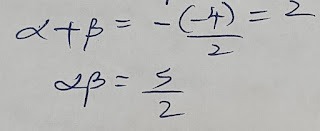 α+β = -(-4)/2 = 2
αβ = 5/2